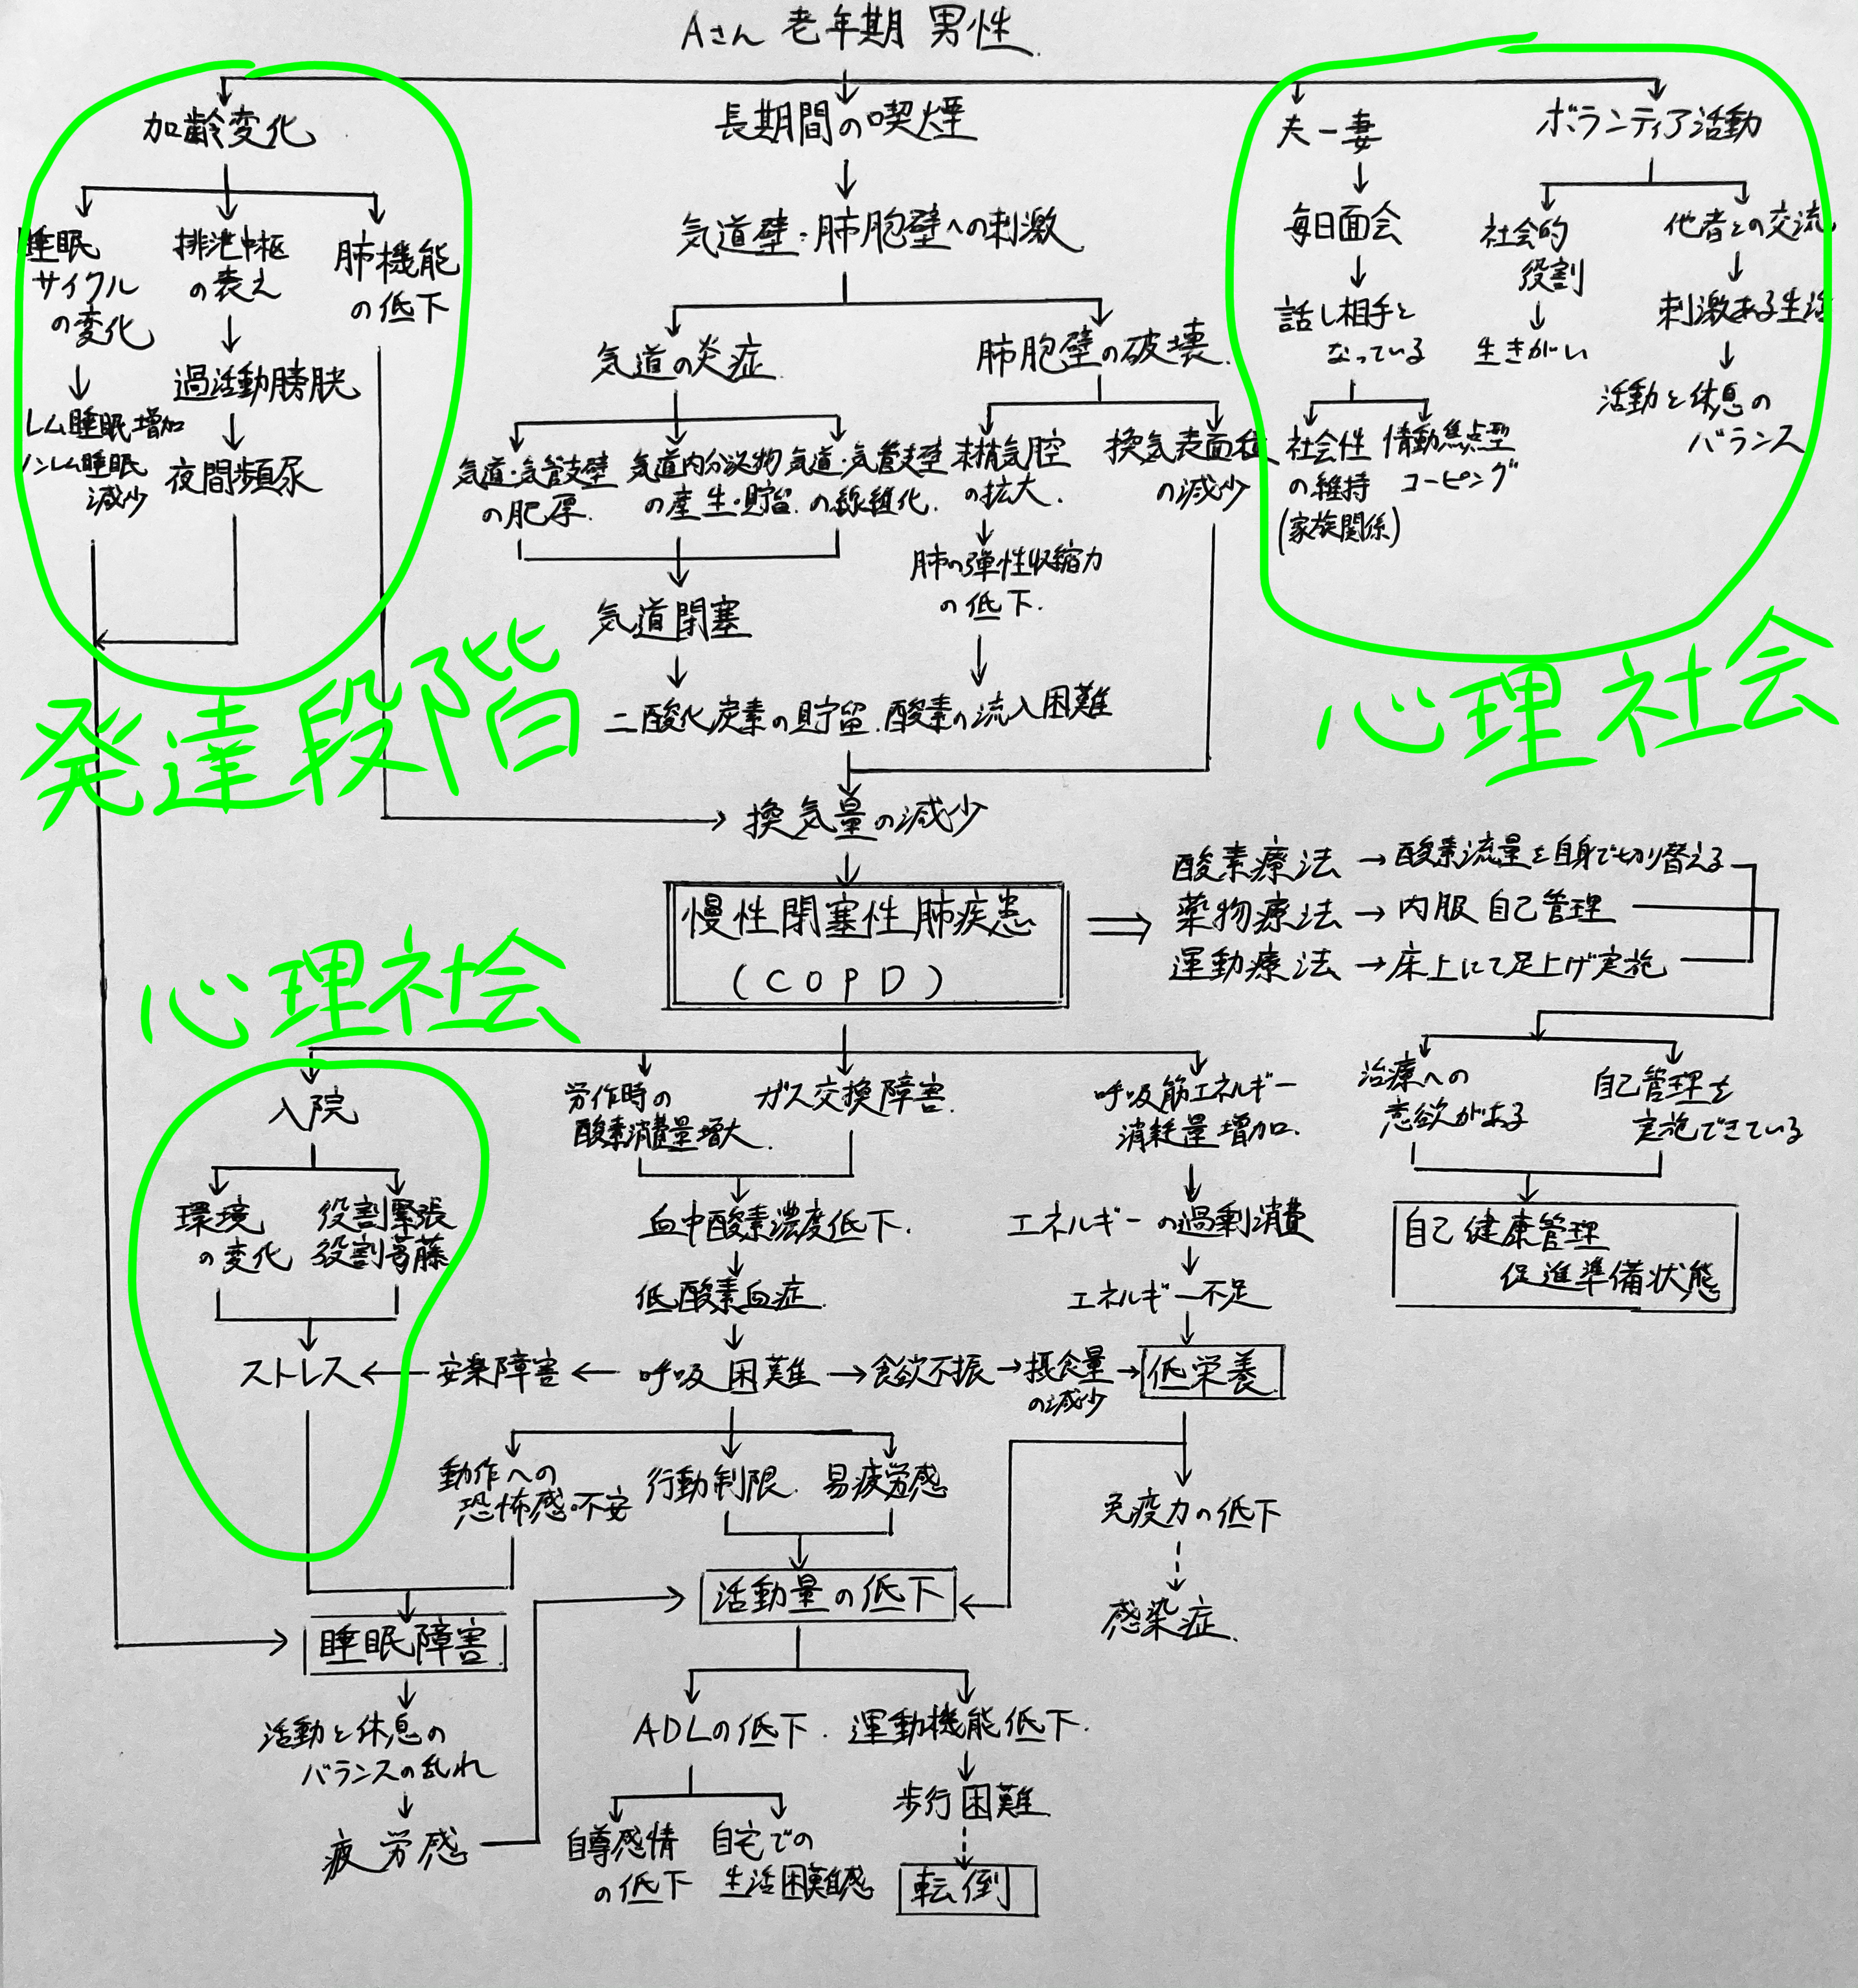 Aさん 老年期 男性.
加齢変化
長期間の喫煙
夫ー妻
ボランティア活動
睡眠
サイクル
の変化
排泄中枢
の衰え
肺機能
の低下
レム睡眠増加
ノンレム睡眠
減少
過活動膀胱
夜間頻尿
気道壁・肺胞壁への刺激
気道の炎症
肺胞壁の破壊.
気道・気管支壁
の肥厚.
気道内分泌物
の産生・貯留.
気道・気管支壁
の線維化.
末梢気腔
の拡大.
換気表面積
の減少
肺の弾性収縮力
の低下.
気道閉塞
二酸化炭素の貯留.
酸素の流入困難
毎日面会
話し相手と
なっている
社会性
の維持
(家族関係)
情動焦点型
コーピング
社会的
役割
生きがい
他者との交流
刺激ある生活
活動と休息の
バランス
発達段階
心理社会
換気量の減少
慢性閉塞性肺疾患
(COPD)
酸素療法→酸素流量を自身で切り替える
薬物療法→内服 自己管理
運動療法→床上にて足上げ実施
治療への
意欲がある
自己管理を
実施できている
自己健康管理
促進準備状態
心理社会
入院
環境
の変化
役割緊張
役割葛藤
労作時の
酸素消費量増大.
ガス交換障害.
呼吸筋エネルギー
消耗量増加.
血中酸素濃度低下.
エネルギーの過剰消費
低酸素血症.
エネルギー不足
ストレス←安楽障害←呼吸困難→食欲不振→摂食量
の減少
→低栄養
動作への
恐怖感・不安
行動制限.
易疲労感
免疫力の低下
感染症.
活動量の低下
睡眠障害
活動と休息の
バランスの乱れ
疲労感
ADLの低下.
運動機能低下.
自尊感情
の低下
自宅での
生活困難感
歩行困難.
転倒